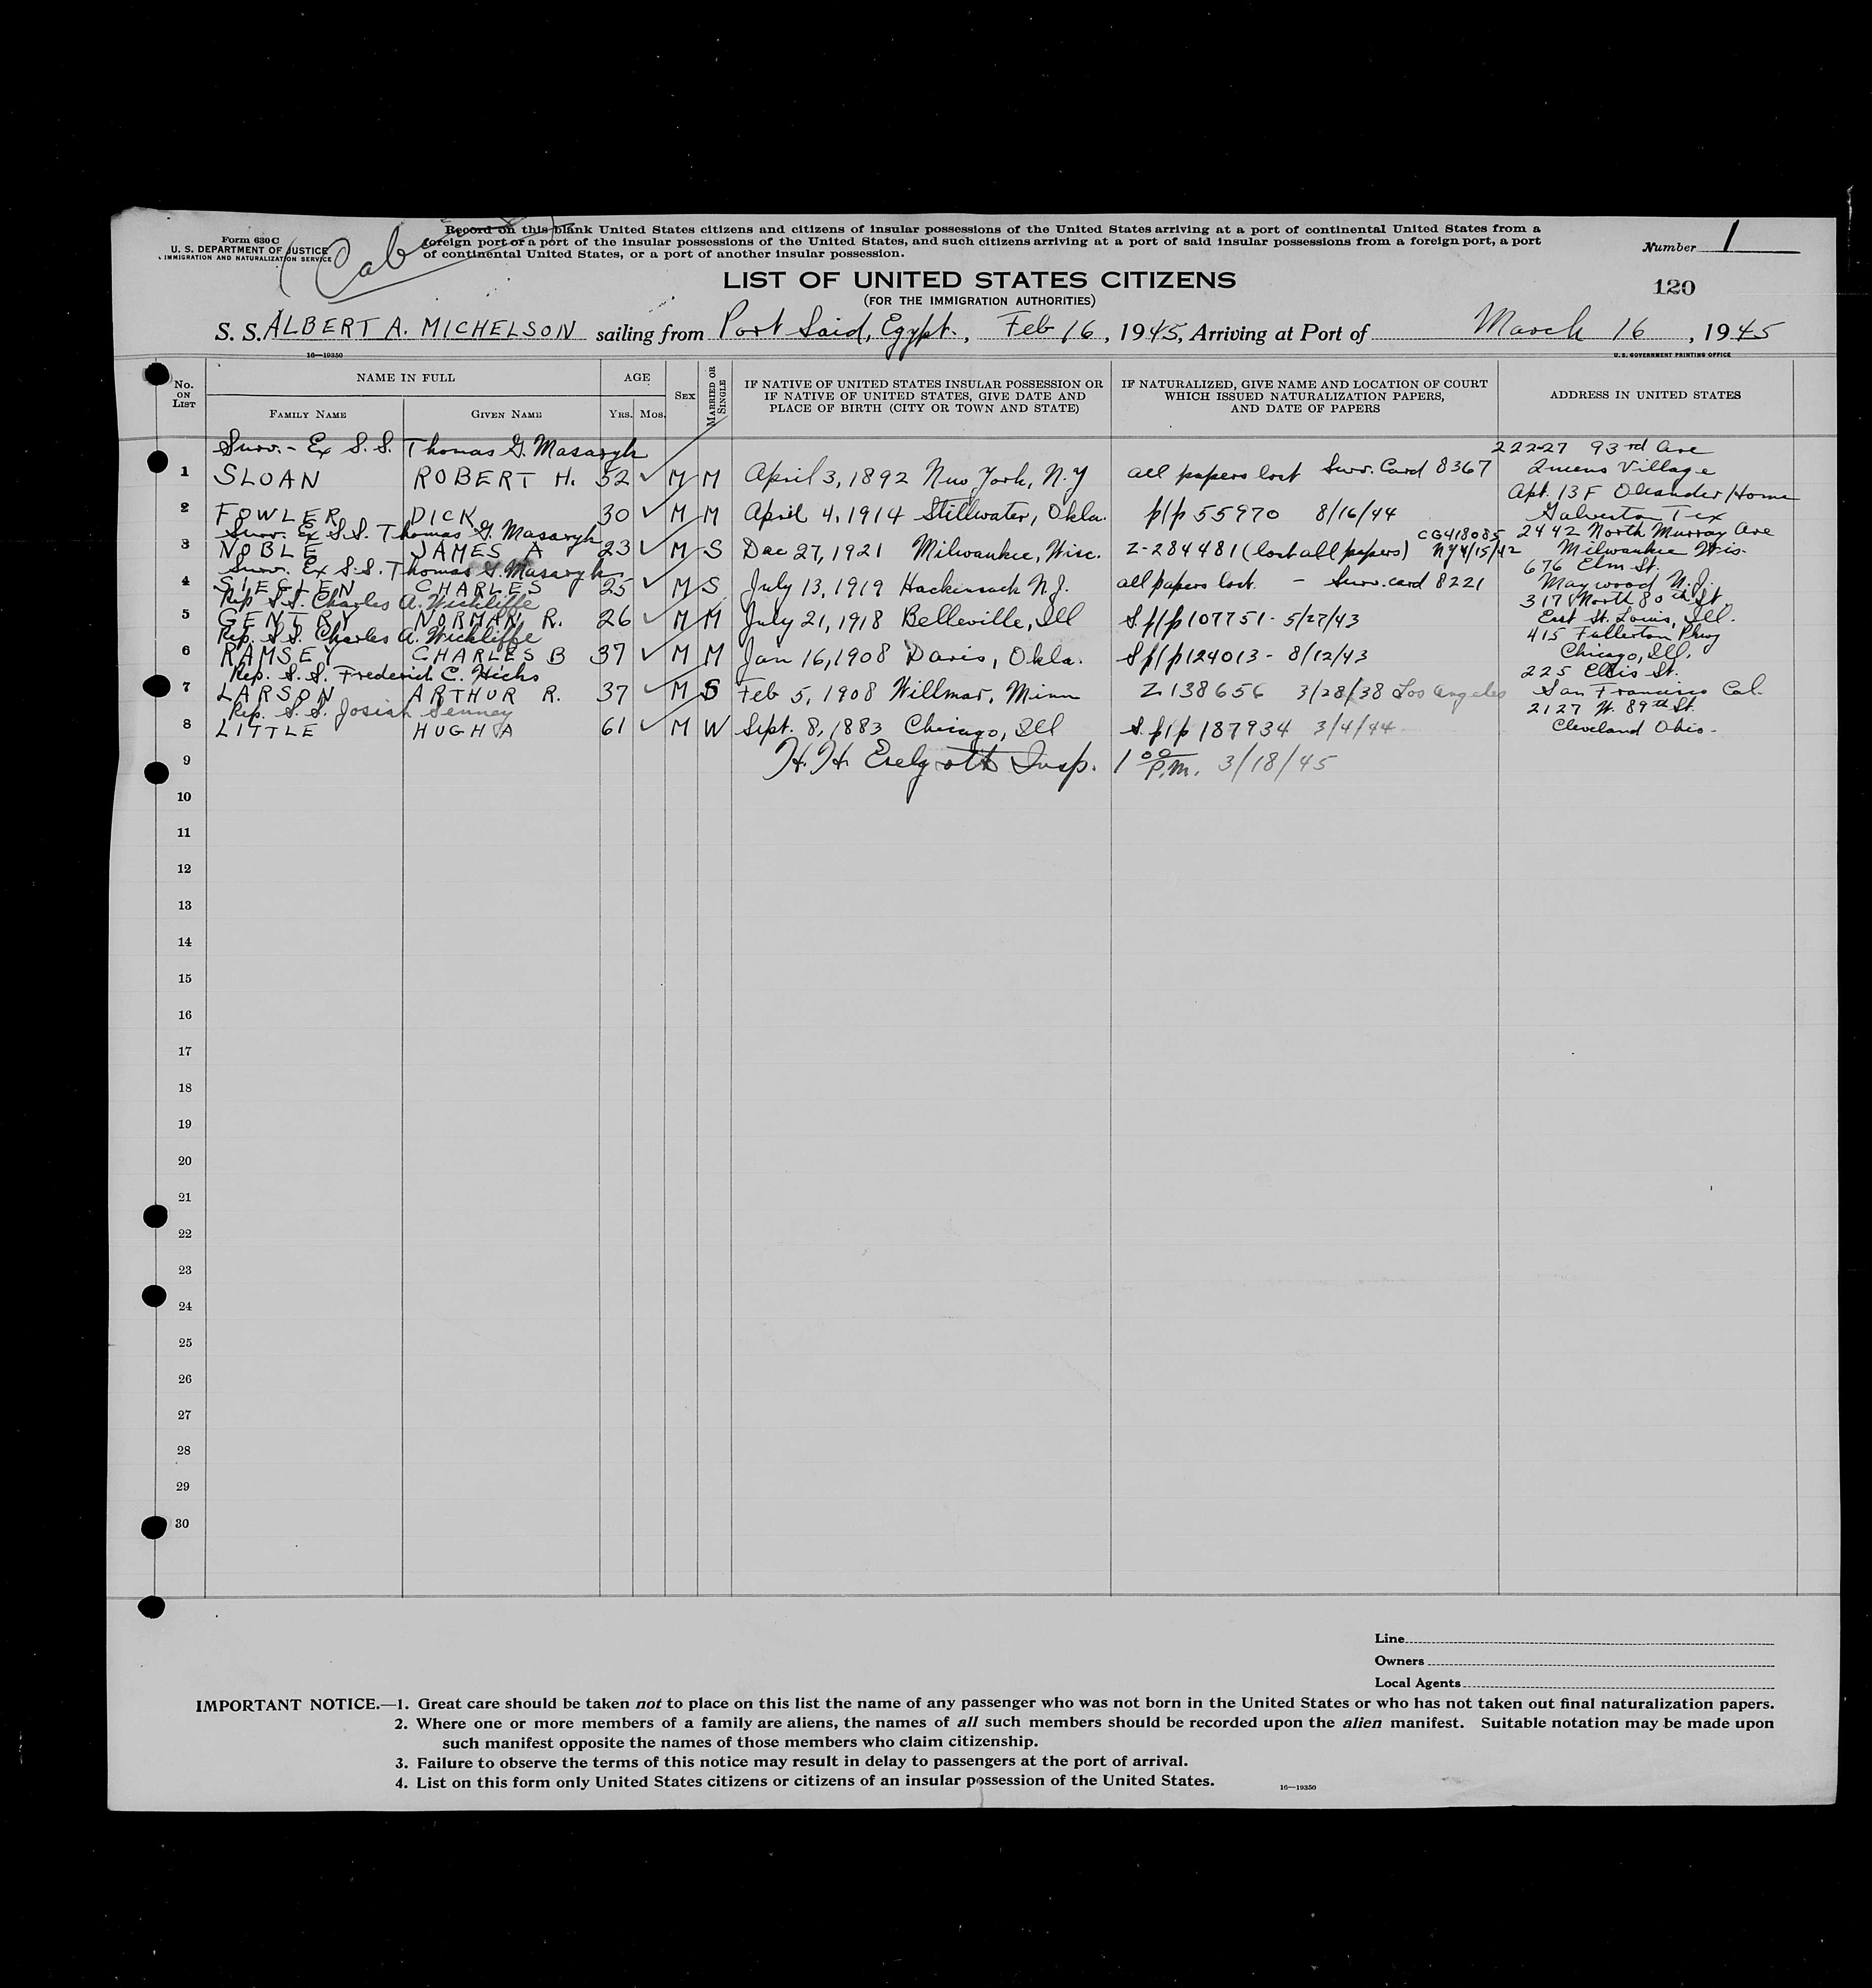 Form 630 C
U. S. DEPARTMENT OF JUSTICE
IMMIGRATION AND NATURALIZATION SERVICE
(Cab
Record on this blank United States citizens and citizens of insular possessions of the United States arriving at a port of continental United States from a
foreign port or a port of the insular possessions of the United States, and such citizens arriving at a port of said insular possessions from a foreign port, a port
of continental United States, or a port of another insular possession.
Number 1
LIST OF UNITED STATES CITIZENS
(FOR THE IMMIGRATION AUTHORITIES)
120
S. S. ALBERT A. MICHELSON sailing from Port Said, Egypt., Feb 16, 1945, Arriving at Port of March 16, 1945
16—19350
U. S. GOVERNMENT PRINTING OFFICE
No. ON LIST
NAME IN FULL
FAMILY NAME GIVEN NAME
AGE
YRS. MOS.
SEX
MARRIED OR SINGLE
IF NATIVE OF UNITED STATES INSULAR POSSESSION OR
IF NATIVE OF UNITED STATES, GIVE DATE AND
PLACE OF BIRTH (CITY OR TOWN AND STATE)
IF NATURALIZED, GIVE NAME AND LOCATION OF COURT
WHICH ISSUED NATURALIZATION PAPERS,
AND DATE OF PAPERS
ADDRESS IN UNITED STATES
Surv.- Ex S. S. Thomas G. Masaryk 22227 93rd Ave
1 SLOAN ROBERT H. 52 ✓ M M April 3, 1892 New York, N.Y all papers lost Surv. Card 8367 Queens Village
Apt. 13F Oleander Home
2 FOWLER DICK 30 ✓ M M April 4, 1914 Stillwater, Okla. p/p 55970 8/16/44 Galveston Tex
Surv. Ex S.S. Thomas G. Masaryk CG418085 2442 North Murray Ave
3 NOBLE JAMES A 23 ✓ M S Dec 27, 1921 Milwaukee, Wisc. Z-284481 (lost all papers) NY 4/15/42 Milwaukee Wis.
Surv. Ex S.S. Thomas G. Masaryk 676 Elm St.
4 SIEGLEN CHARLES 25 ✓ M S July 13, 1919 Hackensack N.J. all papers lost. - Surv. card 8221 Maywood N.J.
Rep S.S. Charles A. Wickliffe 317 North 80th St
5 GENTRY NORMAN R. 26 ✓ M M July 21, 1918 Belleville, Ill S.p/p 107751 - 5/27/43 East St. Louis, Ill.
Rep. S.S. Charles A. Wickliffe 415 Fullerton Pkwy
6 RAMSEY CHARLES B 37 ✓ M M Jan 16, 1908 Davis, Okla. S p/p 124013 - 8/12/43 Chicago, Ill.
Rep. S. S. Frederick C. Hicks 225 Ellis St.
7 LARSON ARTHUR R. 37 ✓ M S Feb 5, 1908 Willmar, Minn Z 138656 3/28/38 Los Angeles San Francisco Cal.
Rep. S. S. Josiah 2127 W. 89th St.
8 LITTLE HUGH A 61 ✓ M W Sept. 8, 1883 Chicago, Ill S. p/p 187934 3/4/44 Cleveland Ohio.
9 H. H. Insp. 1 00 P.M. 3/18/45
10
11
12
13
14
15
16
17
18
19
20
21
22
23
24
25
26
27
28
29
30
Line
Owners
Local Agents
IMPORTANT NOTICE.—1. Great care should be taken not to place on this list the name of any passenger who was not born in the United States or who has not taken out final naturalization papers.
2. Where one or more members of a family are aliens, the names of all such members should be recorded upon the alien manifest. Suitable notation may be made upon
such manifest opposite the names of those members who claim citizenship.
3. Failure to observe the terms of this notice may result in delay to passengers at the port of arrival.
4. List on this form only United States citizens or citizens of an insular possession of the United States.
16—19350